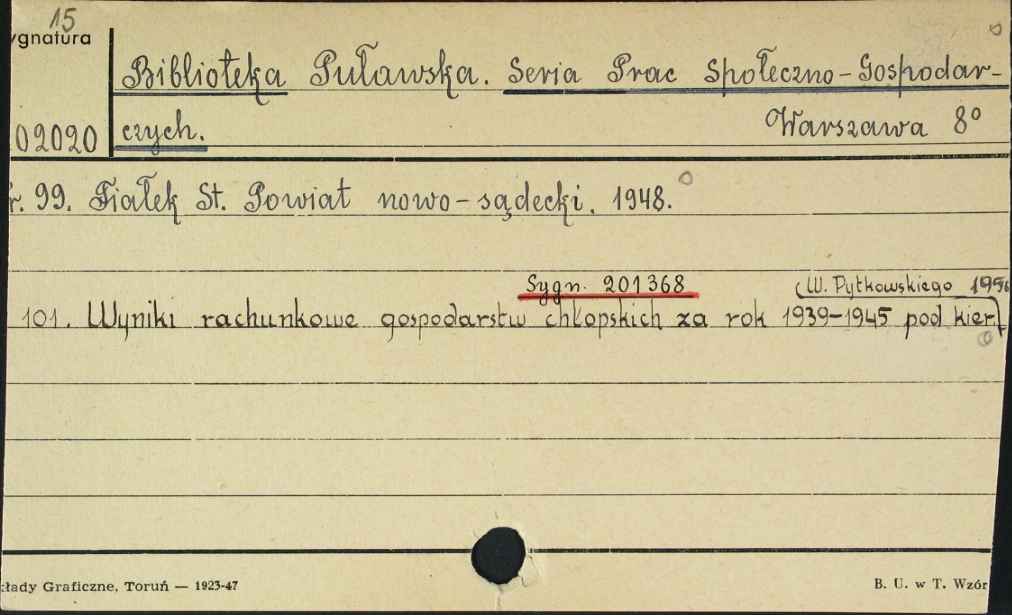 15
ygnatura
Biblioteka Puławska. Seria Prac Społeczno-Gospodar-
02020 czych. Warszawa 8°
r. 99. Fiałek St. Powiat nowo-sądecki. 1948.
Sygn. 201368 (W. Pytkowskiego 195
101. Wyniki rachunkowe gospodarstw chłopskich za rok 1939-1945 pod kier.
kłady Graficzne, Toruń — 1923-47 B. U. w T. Wzór